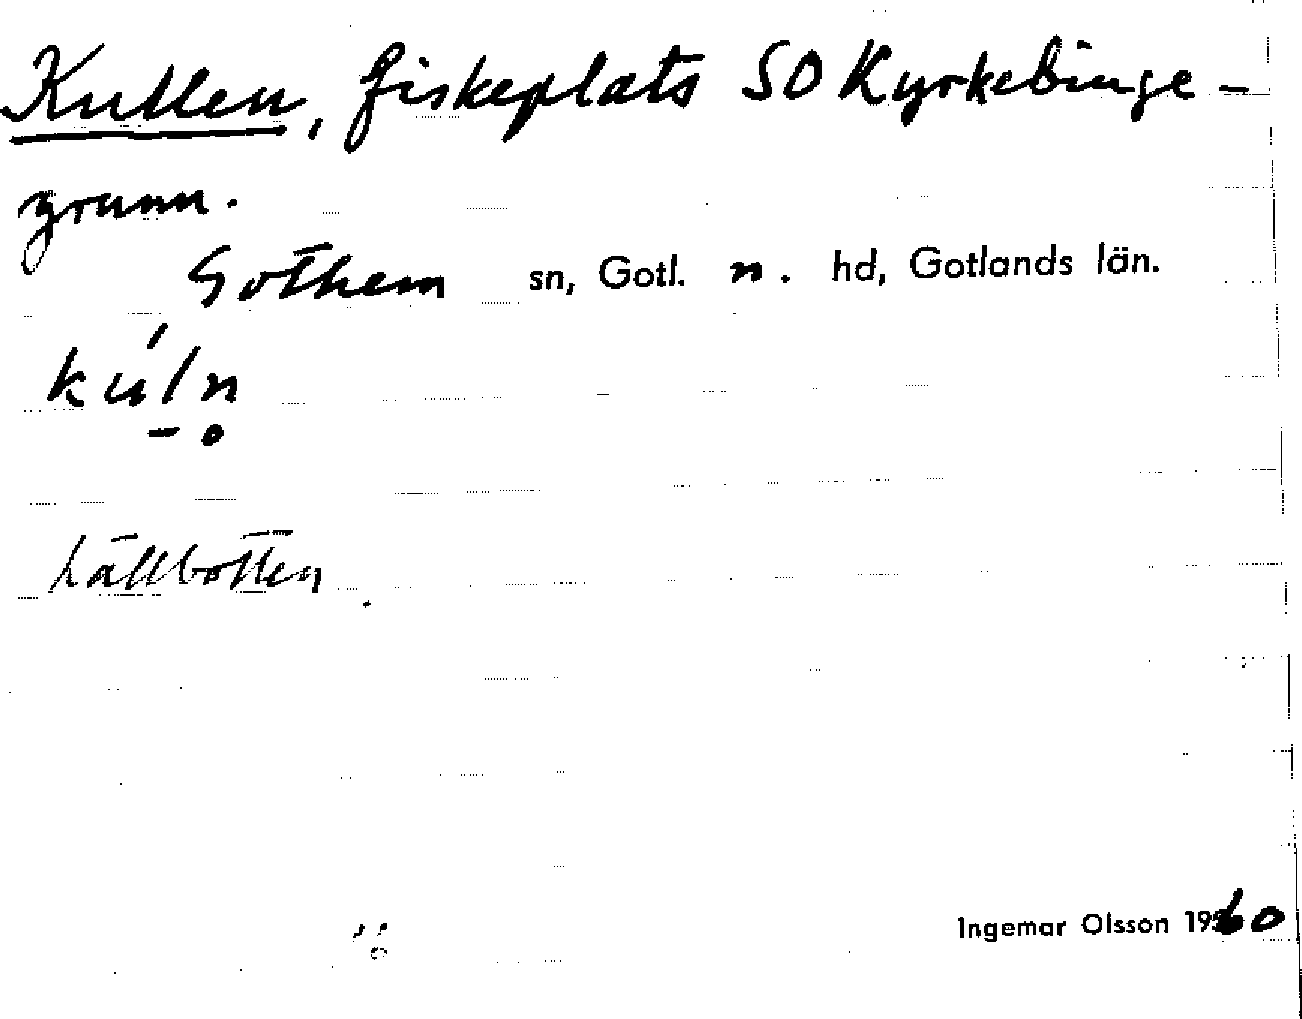 Kullen, fiskeplats SO Kyrkebinge-
grunn.
Gothem sn, Gotl. n. hd, Gotlands län.
kúln̥
hällbotten
Ingemar Olsson 1960